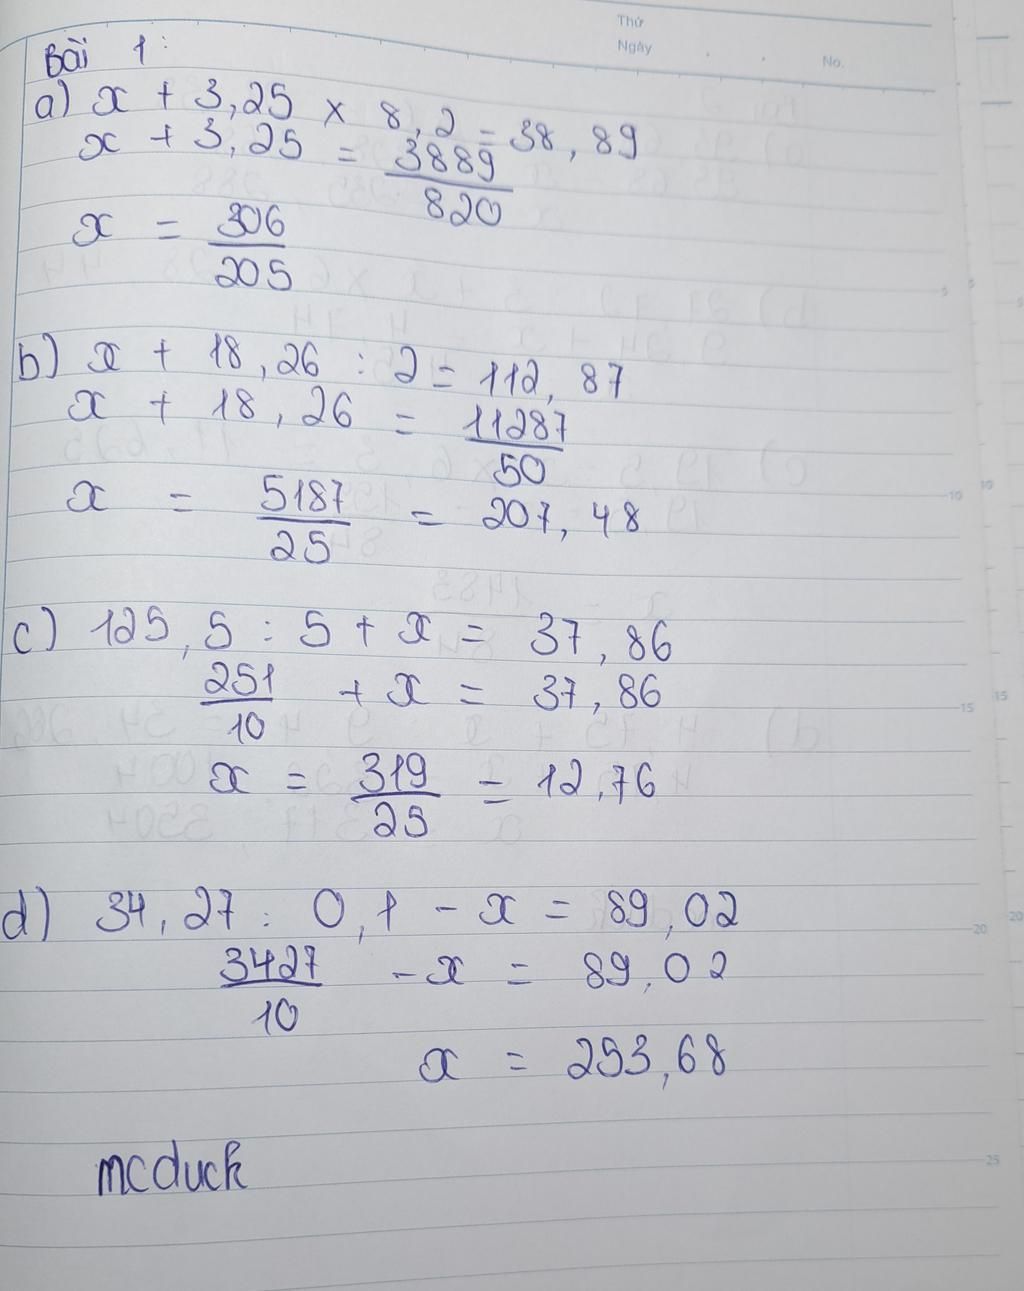 Thứ
Ngày
No.
Bài 1:
a) x + 3,25 × 8,2 = 38,89
x + 3,25 = 3889/820
x = 306/205
b) x + 18,26 : 2 = 112,87
x + 18,26 = 11287/50
x = 5187/25 = 207,48
c) 125,5 : 5 + x = 37,86
251/10 + x = 37,86
x = 319/25 = 12,76
d) 34,27 : 0,1 - x = 89,02
3427/10 - x = 89,02
x = 253,68
mcduck
5
10
15
20
25